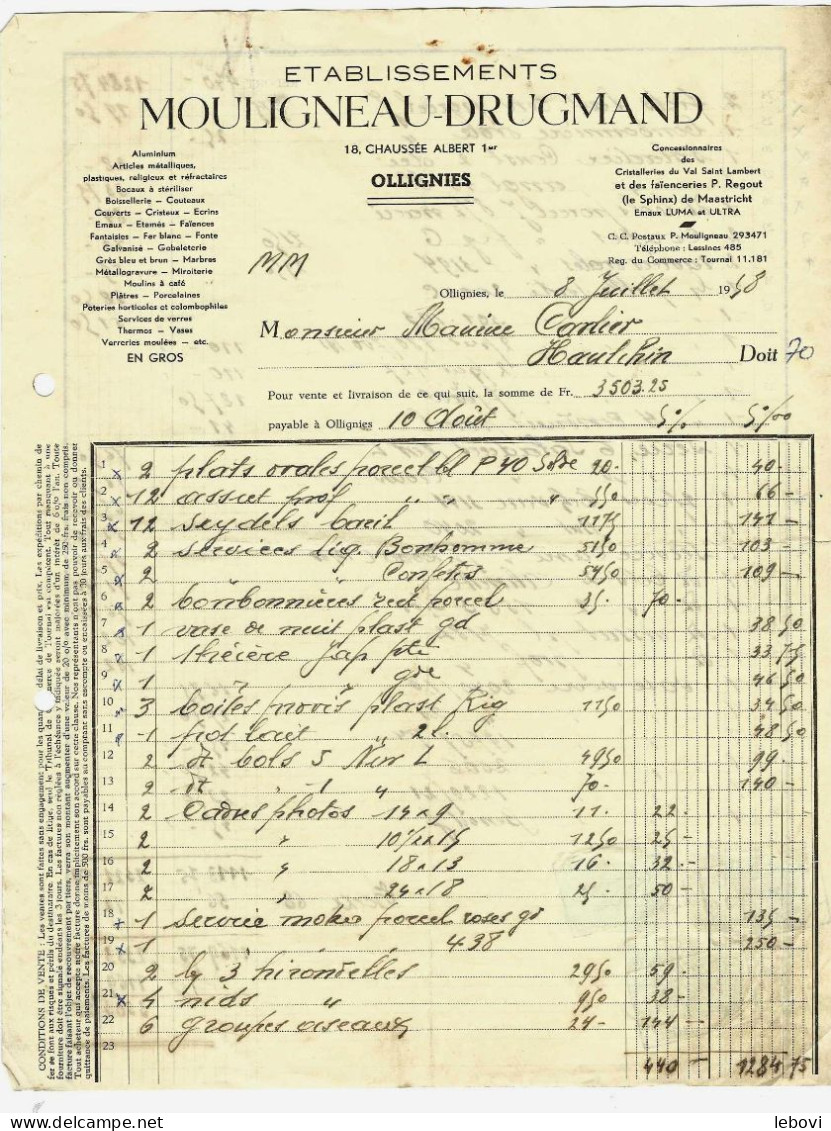 ETABLISSEMENTS
MOULIGNEAU-DRUGMAND
18, CHAUSSÉE ALBERT 1er
OLLIGNIES
Aluminium
Articles métalliques,
plastiques, religieux et réfractaires
Bocaux à stériliser
Boissellerie - Couteaux
Couverts - Cristaux - Ecrins
Emaux - Etamés - Faïences
Fantaisies - Fer blanc - Fonte
Galvanisé - Gobeleterie
Grès bleu et brun - Marbres
Métallogravure - Miroiterie
Moulins à café
Plâtres - Porcelaines
Poteries horticoles et colombophiles
Services de verres
Thermos - Vases
Verreries moulées - etc.
EN GROS
Concessionnaires
des
Cristalleries du Val Saint Lambert
et des faïenceries P. Regout
(le Sphinx) de Maastricht
Emaux LUMA et ULTRA
C. C. Postaux P. Mouligneau 293471
Téléphone : Lessines 485
Reg. du Commerce : Tournai 11.181
MM
Ollignies, le 8 Juillet 1958
Monsieur Maurice Carlier
Haulchin Doit 70
Pour vente et livraison de ce qui suit, la somme de Fr. 3503.25
payable à Ollignies 10 Août 5% 5%00
1 x 2 plats ovales porcel bl P40 20- 40-
2 x 12 assiet prof " " " 550 66-
3 x 12 seydels baril 1175 141-
4 x 2 services liq. Bonhomme 5150 103-
5 2 Confetis 5450 109-
6 2 bonbonnières rect porcel 35- 70-
7 x 1 vase de nuit plast gd 38 50
8 1 théière Jap pte 33 75
9 1 " " gde 46 50
10 3 boites provis plast Rig 1150 34 50
11 1 pot lait " 2l. 48 50
12 2 st bols 5 4950 99-
13 2 st " -1 " 70- 140-
14 2 Cadres photos 14x9 11- 22-
15 2 " 10 1/2 x 15 1250 25-
16 2 " 18x13 16- 32-
17 2 " 24x18 25- 50-
18 x 1 service moka porcel roses gd 135-
19 x 1 438 250-
20 2 3 hirondelles 2950 59-
21 x 4 nids " 950 38-
22 6 groupes oiseaux 24- 144-
23
440- 1284 75
CONDITIONS DE VENTE : Les ventes sont faites sans engagement pour les délai de livraison et prix. Les expéditions par chemin de
fer se font aux risques et périls du destinataire. En cas de litige, seul le Tribunal de Commerce de Tournai est compétent. Tout manquant à une
fourniture doit être signalé endéans les 3 jours. Les factures non réglées à l'échéance y indiquée seront majorées d'un intérêt de 6 o/o l'an. Toute
facture faisant l'objet de recouvrement par tiers, verra son montant augmenter d'une valeur de 20 o/o avec minimum de 250 frs. frais non compris.
Tout acheteur qui accepte notre facture donne implicitement son accord sur cette clause. Nos représentants n'ont pas pouvoir de recevoir ou donner
quittance de paiements. Les factures de moins de 500 frs. sont payables au comptant sans escompte ou encaissées à 30 jours aux frais des clients.
© lebovi